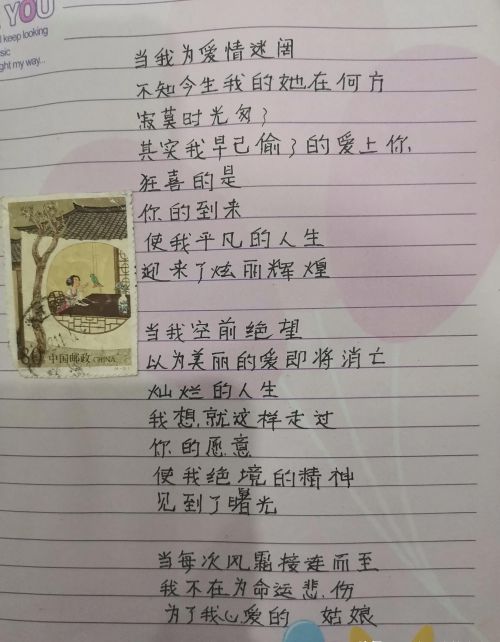 YOU
keep looking
sic
ght my way...
当我为爱情迷困
不知今生我的她在何方
寂莫时光匆了
其实我早已偷了的爱上你
狂喜的是
你的到来
使我平凡的人生
迎来了炫丽辉煌
80 中国邮政 CHINA
当我空前绝望
以为美丽的爱即将消亡
灿烂的人生
我想就这样走过
你的愿意
使我绝境的精神
见到了曙光
当每次风霜接连而至
我不在为命运悲伤
为了我心爱的 姑娘